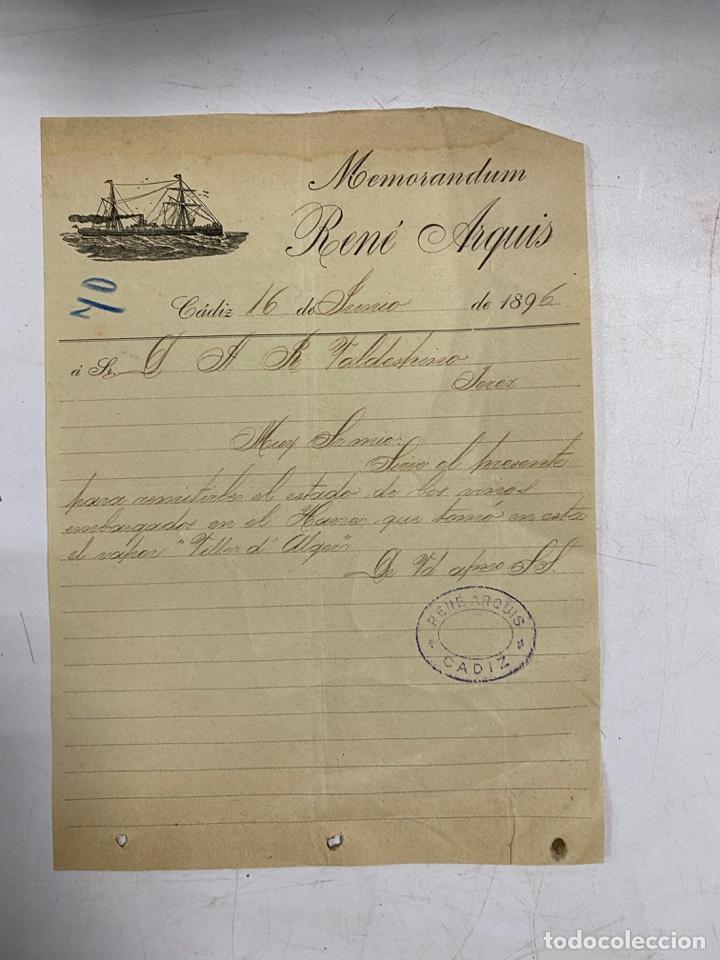 Memorandum
René Arquis
40
Cádiz 16 de Junio de 1896
á Sr. D A R Valdespino
Jerez
Muy Sr mio:
Sirve el presente
para remitirle el estado de los vinos
embargados en el Hamer que tomó en esta
el vapor "Ville d'Alger"
De Vd afmo S S.
RENÉ ARQUIS
CADIZ
todocoleccion
todocoleccion.net